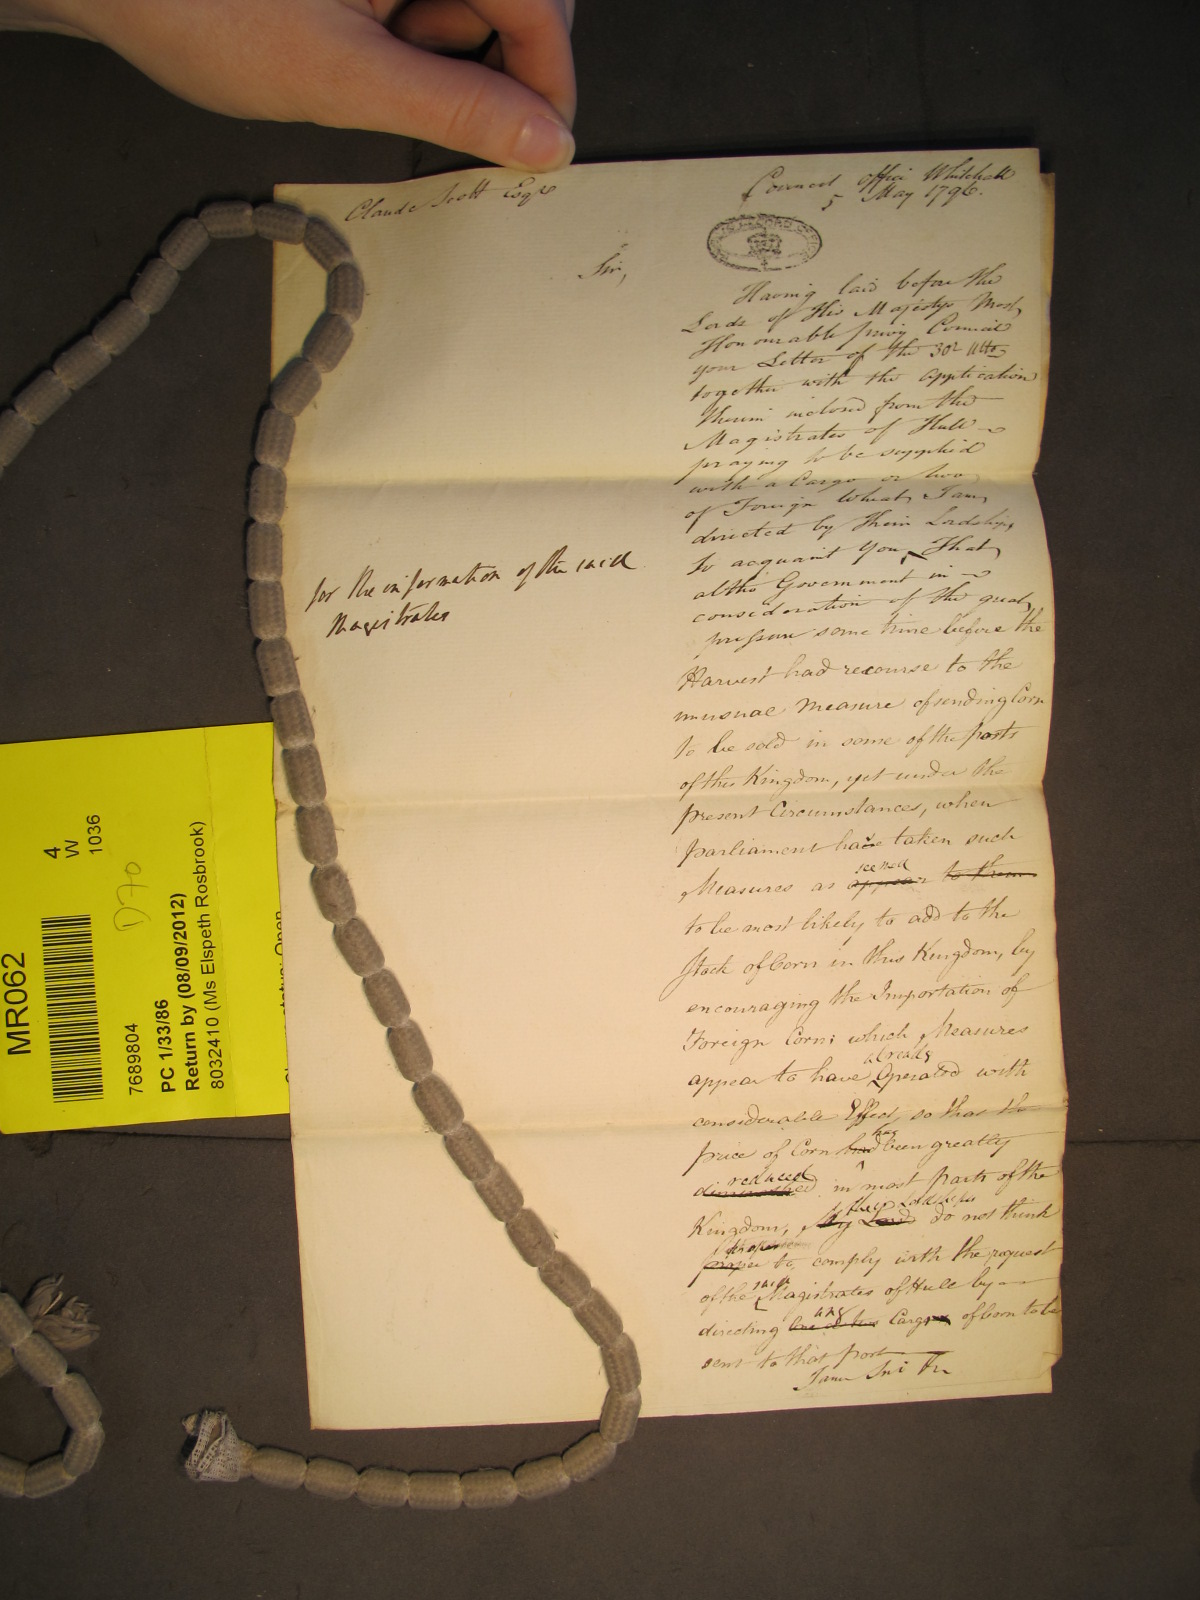 Claude Scott Esqre
Council office Whitehall
5 May 1796.
Sir,
Having laid before the
Lords of His Majestys Most
Honourable privy Council
your Letter of the 30th Ulto
together with the application
therein inclosed from the
Magistrates of Hull
praying to be supplied
with a Cargo or two
of Foreign Wheat, I am
directed by Their Lordships
to acquaint You, That
altho Government in
consideration of the great
pressure some time before the
Harvest had recourse to the
unusual measure of sending Corn
to be sold in some of the ports
of this Kingdom, yet under the
present Circumstances, when
parliament have taken such
seemed
Measures as appear to them
to be most likely to add to the
Stock of Corn in this Kingdom, by
encouraging the Importation of
Foreign Corn; which Measures
already
appear to have Operated with
considerable Effect, so that the
has
price of Corn had been greatly
reduced
diminished in most parts of the
their Lordships
Kingdom, My Lords do not think
proper
proper to comply with the request
said
of the Magistrates of Hull by
any
directing one or two Cargoes of Corn to be
sent to that port
I am Sir &c
for the information of the said
Magistrates
MR062
4
W
1036
D70
7689804
PC 1/33/86
Return by (08/09/2012)
8032410 (Ms Elspeth Rosbrook)